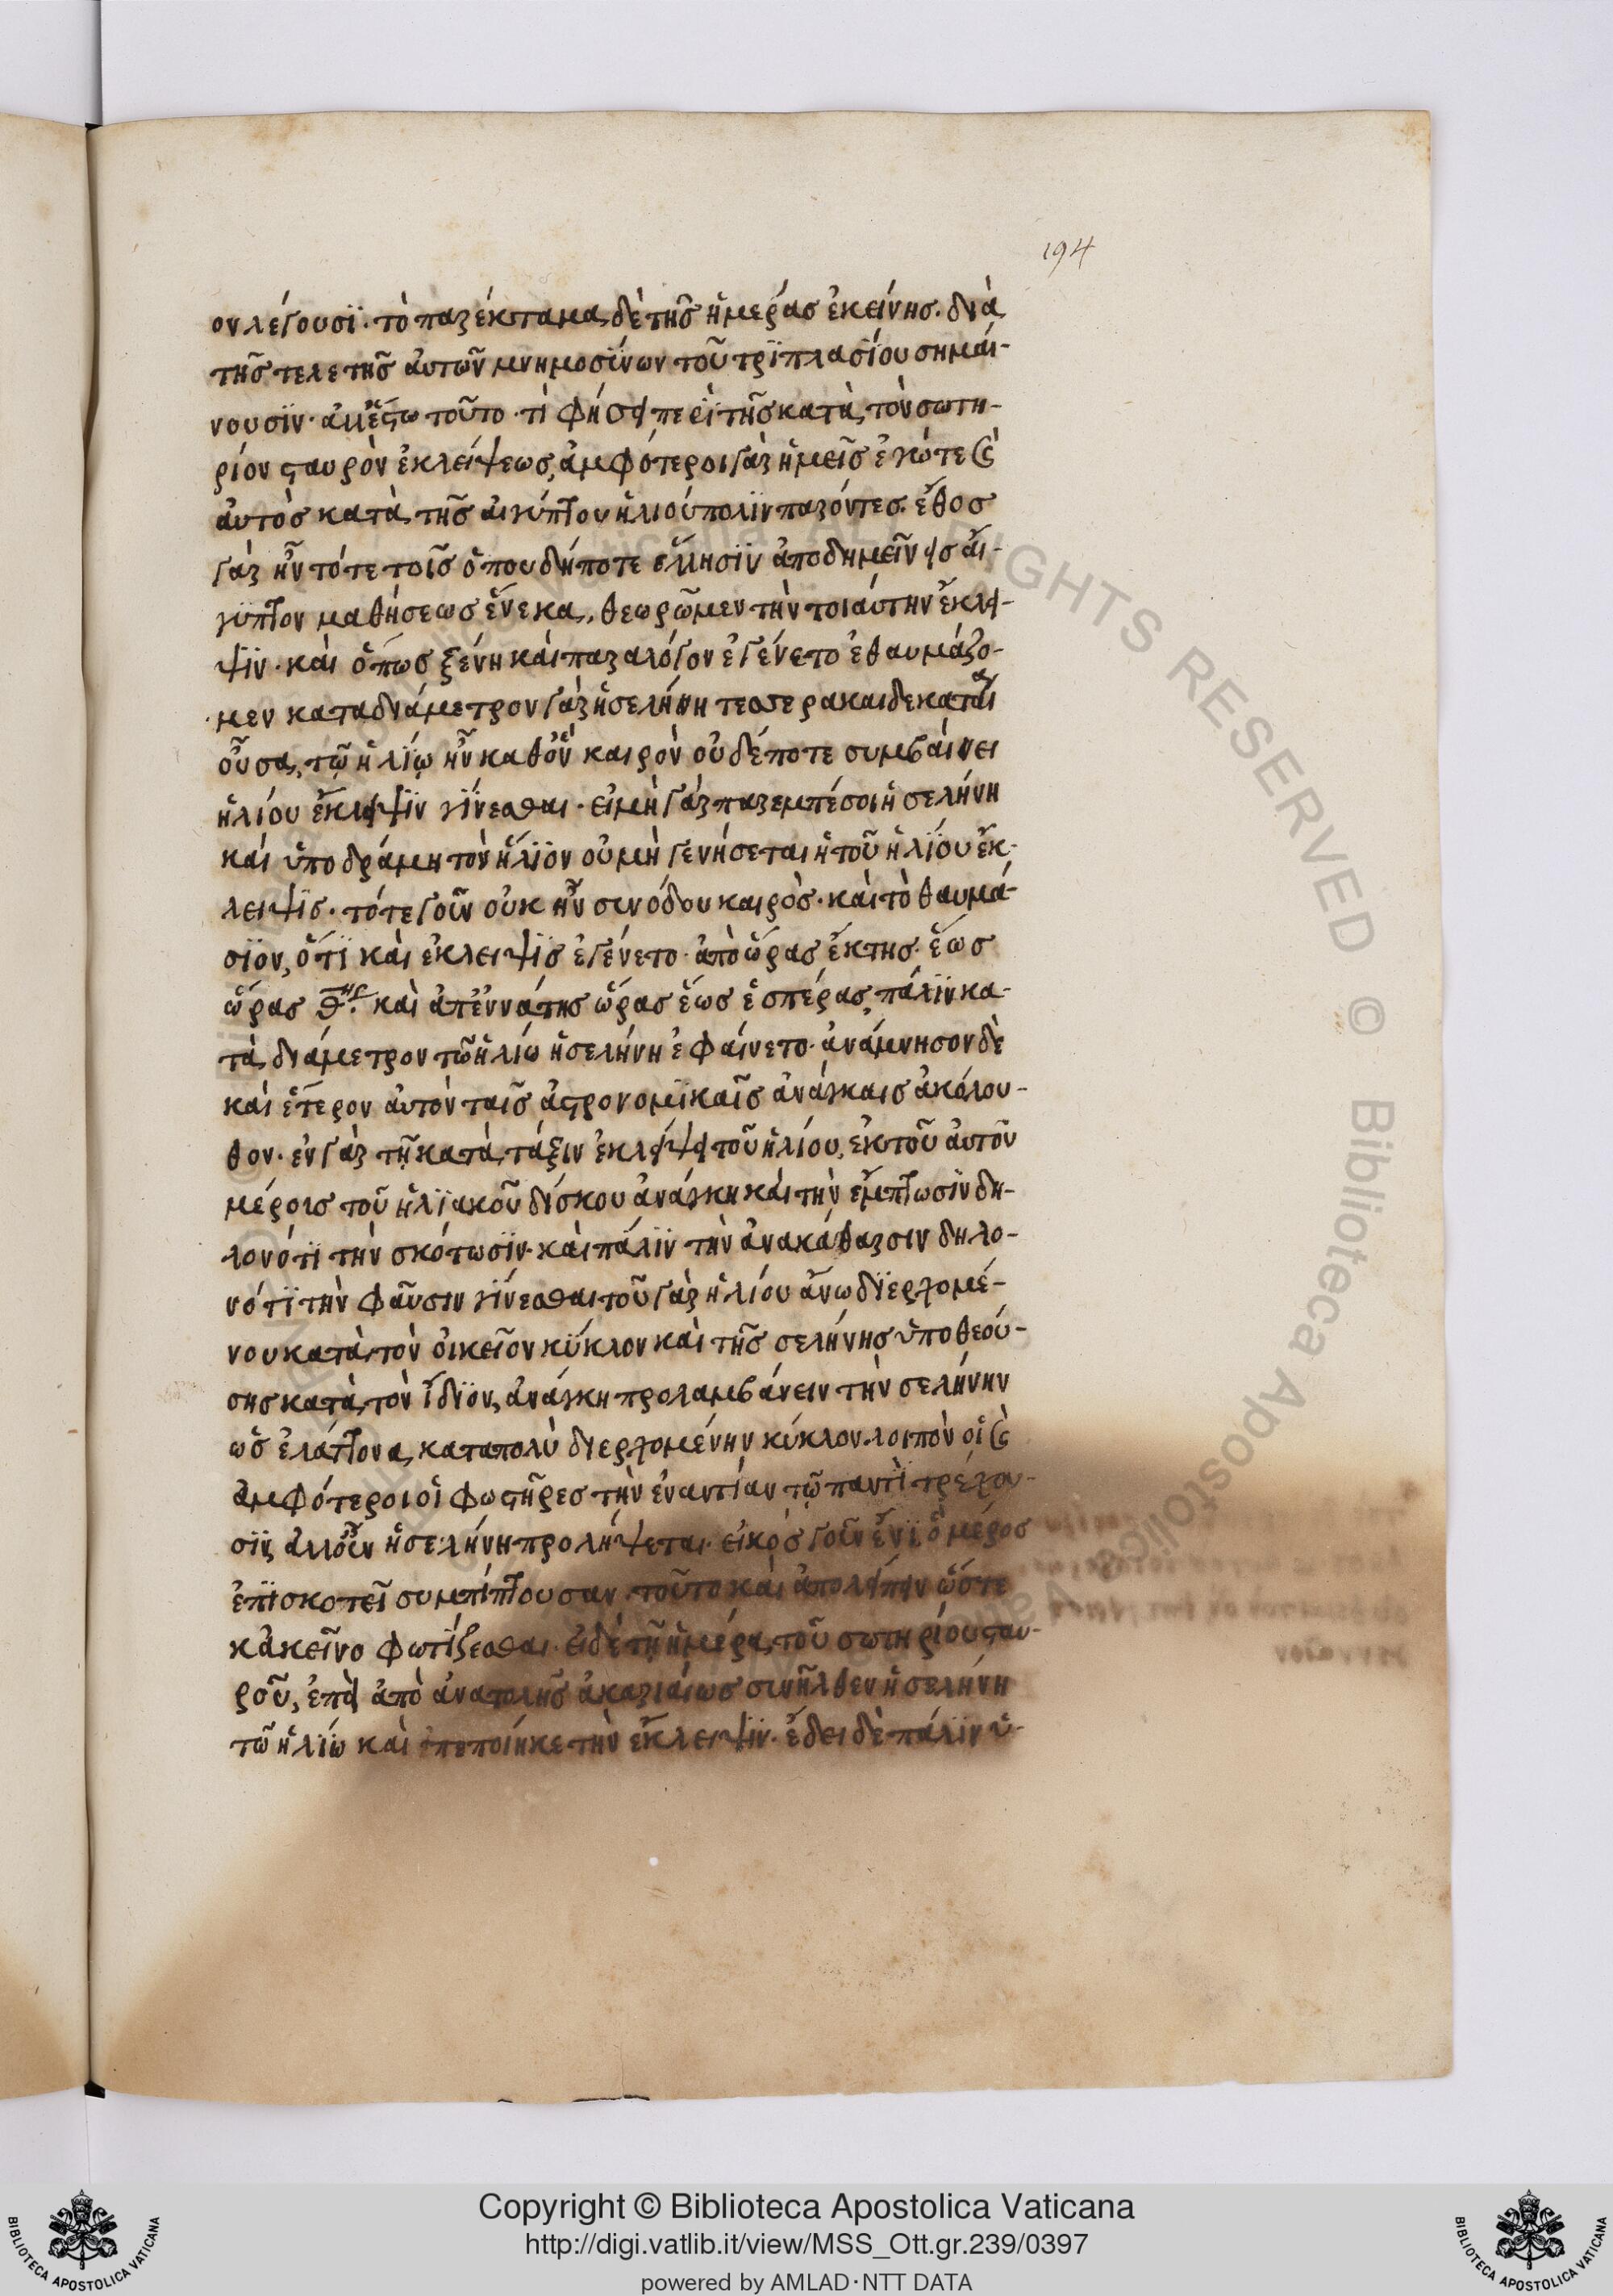 194
ον λέγουσϊ· τὸ παρέκταμα δὲ τῆς ἡμέρας ἐκείνης· διὰ
τῆς τελετῆς ἀυτῶν μνημοσϊνων τοῦ τρϊπλασΐου σημάι-
νουσϊν· ἀλλέστω τοῦτο· τὶ φήσει περὶ τῆς κατὰ τὸν σωτή-
ριον σταυρὸν ἐκλείψεως, ἀμφότεροι γὰρ ἡμεῖς ἐγώτε καὶ
ἀυτὸς κατὰ τῆς αἰγύπτου ἡλιούπολϊν παρόντες· ἔθος
γὰρ ἦν τότε τοῖς ὁπουδήποτε ἕλλησϊν ἀποδημεῖν εἰς ἀι-
γϋπτον μαθήσεως ἕνεκα, θεωρῶμεν τὴν τοιάυτην ἔκλει-
ψϊν· κὰι ὅπως ξένη κὰι παραλόγον ἐγένετο ἐθαυμάζο-
μεν καταδιάμετρον γὰρ ἡ σελήνη τεσσερακαιδεκαταῖ
οὖσα, τῷ ἡλΐῳ ἦν καθὃν καιρὸν οὐδέποτε συμβάινει
ἡλίου ἔκλειψϊν γΐνεσθαι· εἰμὴ γὰρ παρεμπέσοι ἡ σελήνη
κάι ὑποδράμη τὸν ἥλϊον οὐμὴ γενήσεται ἡ τοῦ ἡλΐου ἔκ-
λειψϊς· τότε γοῦν οὐκ ἦν συνόδου καιρὸς· κὰι τὸ θαυμά-
σϊον, ὅτϊ κὰι ἐκλειψϊς ἐγένετο· ἀπὸ ὥρας ἕκτης· ἕως
ὥρας θ´ης· καὶ ἀπἐννάτης ὥρας ἕως ἑσπέρας, πάλϊν κα-
τὰ διάμετρον τῶ ἡλίω ἡ σελήνη ἐφάινετο· ἀνάμνησον δὲ
κάι ἕτερον ἀυτὸν ταῖς ἀστρονομϊκαῖς ἀνάγκαις ἀκόλου-
θον· ἐν γὰρ τῇ κατὰ τάξιν ἐκλείψει τοῦ ἡλίου, ἐκ τοῦ ἀυτοῦ
μέροις τοῦ ἡλϊακοῦ δίσκου ἀνάγκη κάι τὴν ἔμπτωσϊν δη-
λονότϊ τὴν σκότωσϊν· κὰι πάλϊν τὴν ἀνακάθαρσιν δηλο-
νότϊ τὴν φαῦσιν γΐνεσθαι τοῦ γὰρ ἡλίου ἄνω δϊερχομέ-
νου κατὰ τὸν ὀικεῖον κΰκλον κὰι τῆς σελήνης ὑποθεού-
σης κατὰ τὸν ἴδϊον, ἀνάγκη προλαμβάνειν τὴν σελήνην
ὡς ἐλάττονα, καταπολὺ διερχομένην κύκλον. λοιπὸν οἱ καὶ
ἀμφότεροι οἱ φωστῆρες τὴν ἐναντίαν τῷ παντὶ τρέχου-
σϊν, ἀλλοὖν ἡ σελήνη προλήψεται· εἰκὸς γοῦν ἔνϊ, ὃ μέρος
ἐπϊσκοτεῖ συμπΐπτουσαν τοῦτο κὰι ἀπολείπειν ὥστε
κἀκεῖνο φωτΐζεσθαι· ἐι δὲ τῇ ἡμέρα, τοῦ σωτηρίου σταυ-
ροῦ, ἐπεὶ ἀπὸ ἀνατολῆς ἀκαριάιως συνῆλθεν ἡ σελήνη
τῶ ἡλϊώ κὰι ἐπεποίηκε τὴν ἔκλειψϊν· ἔδει δὲ πάλϊν ὑ-
Copyright © Biblioteca Apostolica Vaticana
http://digi.vatlib.it/view/MSS_Ott.gr.239/0397
powered by AMLAD·NTT DATA
BIBLIOTECA APOSTOLICA VATICANA
BIBLIOTECA APOSTOLICA VATICANA